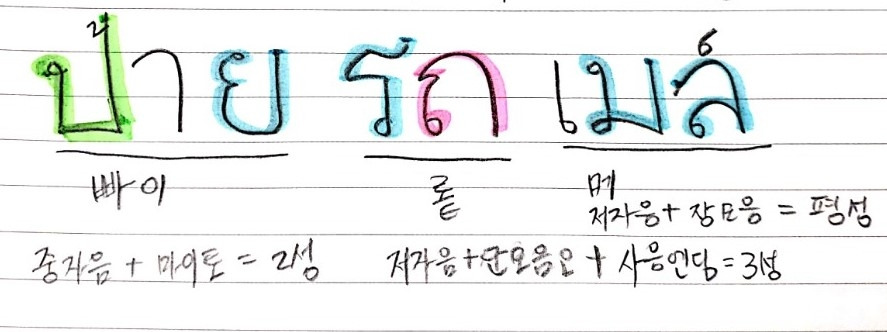 ป้าย รถ เมล์
빠이 롣 메
저자음+ 장모음 = 평성
중자음 + 마이토 = 2성 저자음+단모음오 + 사음엔딩=3성